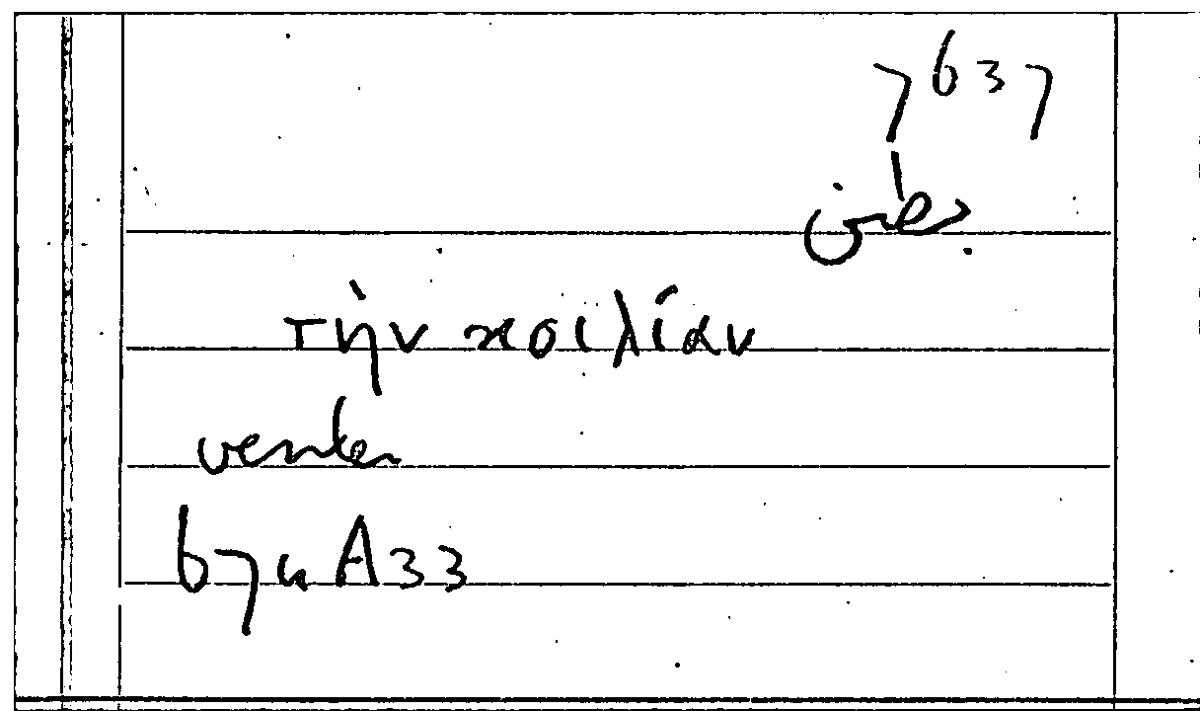 7637
بطن
τὴν κοιλίαν
venter
67u A33